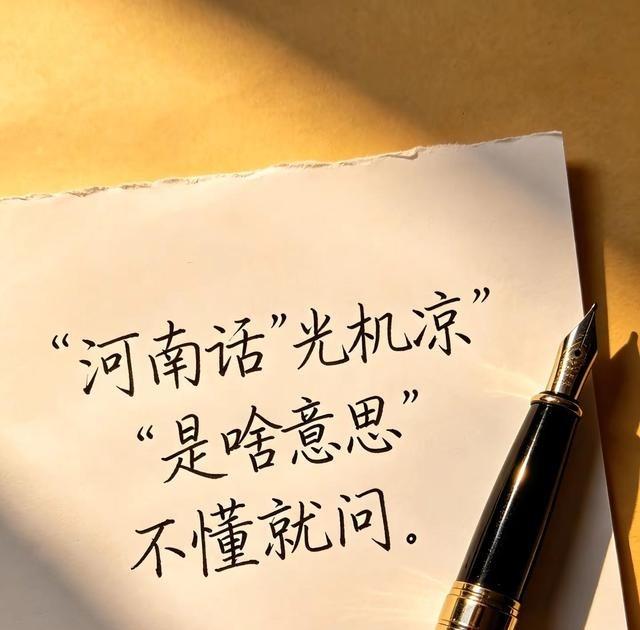 “河南话”光机凉”
“是啥意思”
不懂就问。